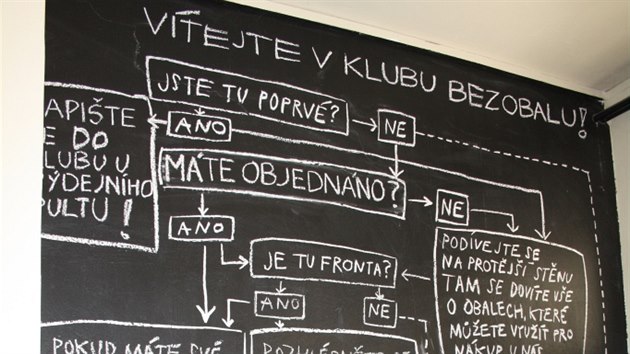 VÍTEJTE V KLUBU BEZOBALU!
JSTE TU POPRVÉ?
ANO
NE
APIŠTE
E DO
LUBU U
ÝDEJNÍHO
PULTU!
MÁTE OBJEDNÁNO?
ANO
NE
JE TU FRONTA?
ANO
NE
PODÍVEJTE SE
NA PROTĚJŠÍ STĚNU
TAM SE DOVÍTE VŠE
O OBALECH, KTERÉ
MŮŽETE VYUŽÍT PRO
NÁKUP U NÁS
POKUD MÁTE SVÉ